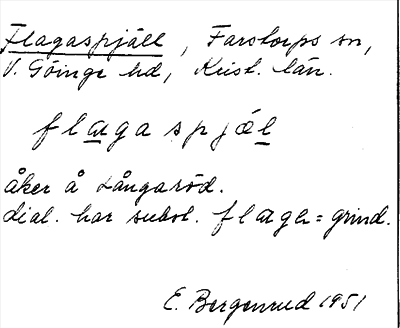 Flagaspjäll, Farstorps sn,
V. Göinge hd, Krist. län.
flagaspjæl
åker å Långaröd.
dial. har subst. flage = grind.
E. Bergenrud 1951